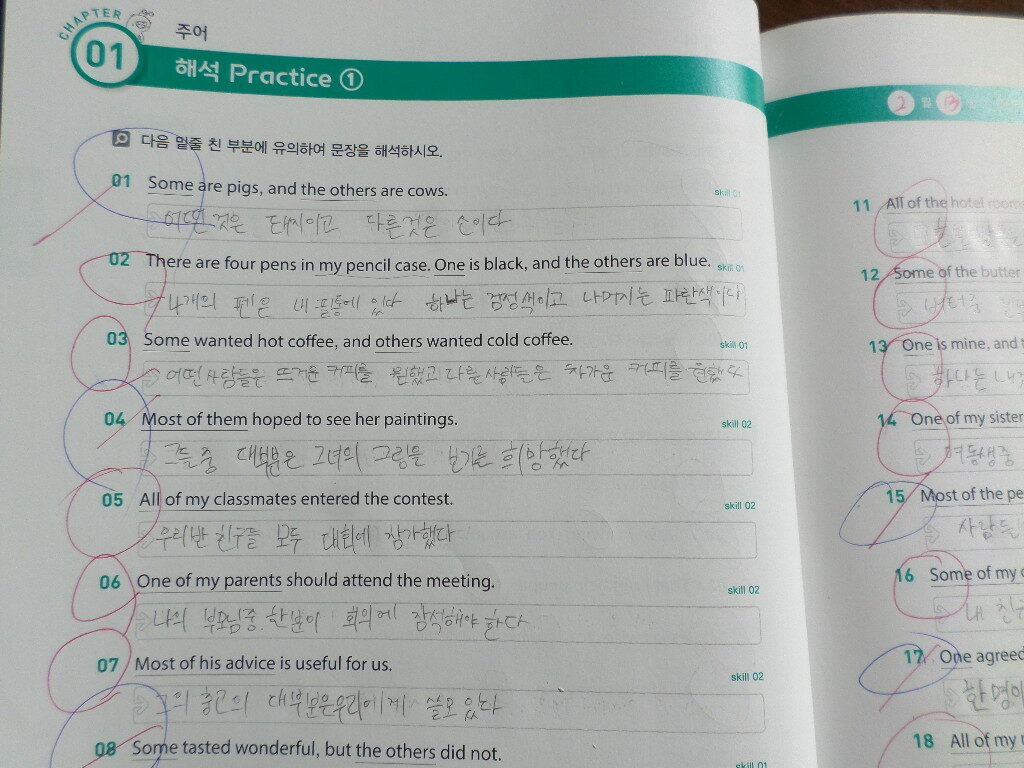 CHAPTER
01
주어
해석 Practice ①
다음 밑줄 친 부분에 유의하여 문장을 해석하시오.
01 Some are pigs, and the others are cows. skill 01
어떤것은 돼지이고 다른것은 소이다
02 There are four pens in my pencil case. One is black, and the others are blue. skill 01
4개의 펜은 내 필통에 있다 하나는 검정색이고 나머지는 파란색이다
03 Some wanted hot coffee, and others wanted cold coffee. skill 01
어떤사람들은 뜨거운 커피를 원했고 다른사람들은 차가운 커피를 원했다
04 Most of them hoped to see her paintings. skill 02
그들중 대부분은 그녀의 그림을 보기를 희망했다
05 All of my classmates entered the contest. skill 02
우리반 친구들 모두 대회에 참가했다
06 One of my parents should attend the meeting. skill 02
나의 부모님중 한분이 회의에 참석해야 한다
07 Most of his advice is useful for us. skill 02
그의 충고의 대부분은 우리에게 쓸모 있다
08 Some tasted wonderful, but the others did not. skill 01
2 월 13
11 All of the hotel rooms
12 Some of the butter
버터중
13 One is mine, and
하나는 내것
14 One of my sister
여동생중
15 Most of the pe
사람들
16 Some of my
내 친구
17 One agreed
한 명이
18 All of my